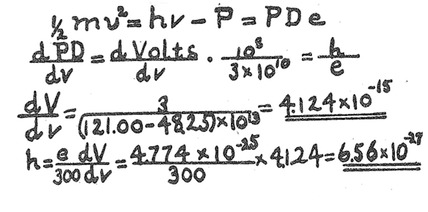 ½mv²=hν-P=PDe
dPD/dν=dVolts/dν · 10⁸/3×10¹⁰=h/e
dV/dν=3/(121.00-48.25)×10¹³=4.124×10⁻¹⁵
h=e/300 dV/dν=4.774×10⁻²⁵/300×4.124=6.56×10⁻²⁷